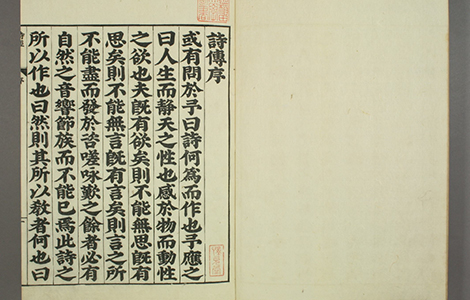 詩傳序
或有問於予曰詩何爲而作也予應之
曰人生而静天之性也感於物而動性
之欲也夫旣有欲矣則不能無思旣有
思矣則不能無言旣有言矣則言之所
不能盡而發於咨嗟咏歎之餘者必有
自然之音響節族而不能已焉此詩之
所以作也曰然則其所以敎者何也曰